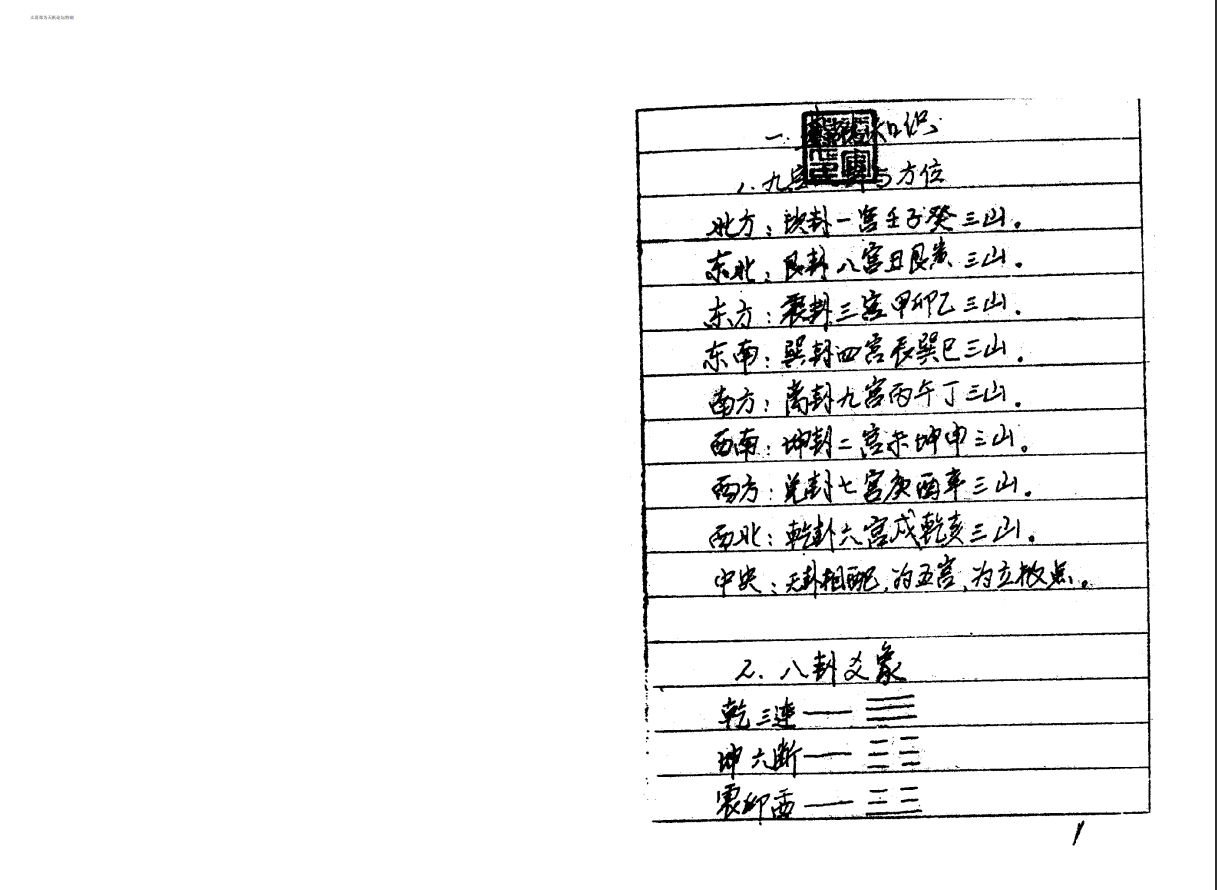 一.知识
1.九宫与方位
北方：坎卦一宫壬子癸三山。
东北：艮卦八宫丑艮寅三山。
东方：震卦三宫甲卯乙三山。
东南：巽卦四宫辰巽巳三山。
南方：离卦九宫丙午丁三山。
西南：坤卦二宫未坤申三山。
西方：兑卦七宫庚酉辛三山。
西北：乾卦六宫戌乾亥三山。
中央：无卦相配，为五宫，为立极点。
2.八卦爻象
乾三连——☰
坤六断——☷
震仰盂——☳
1